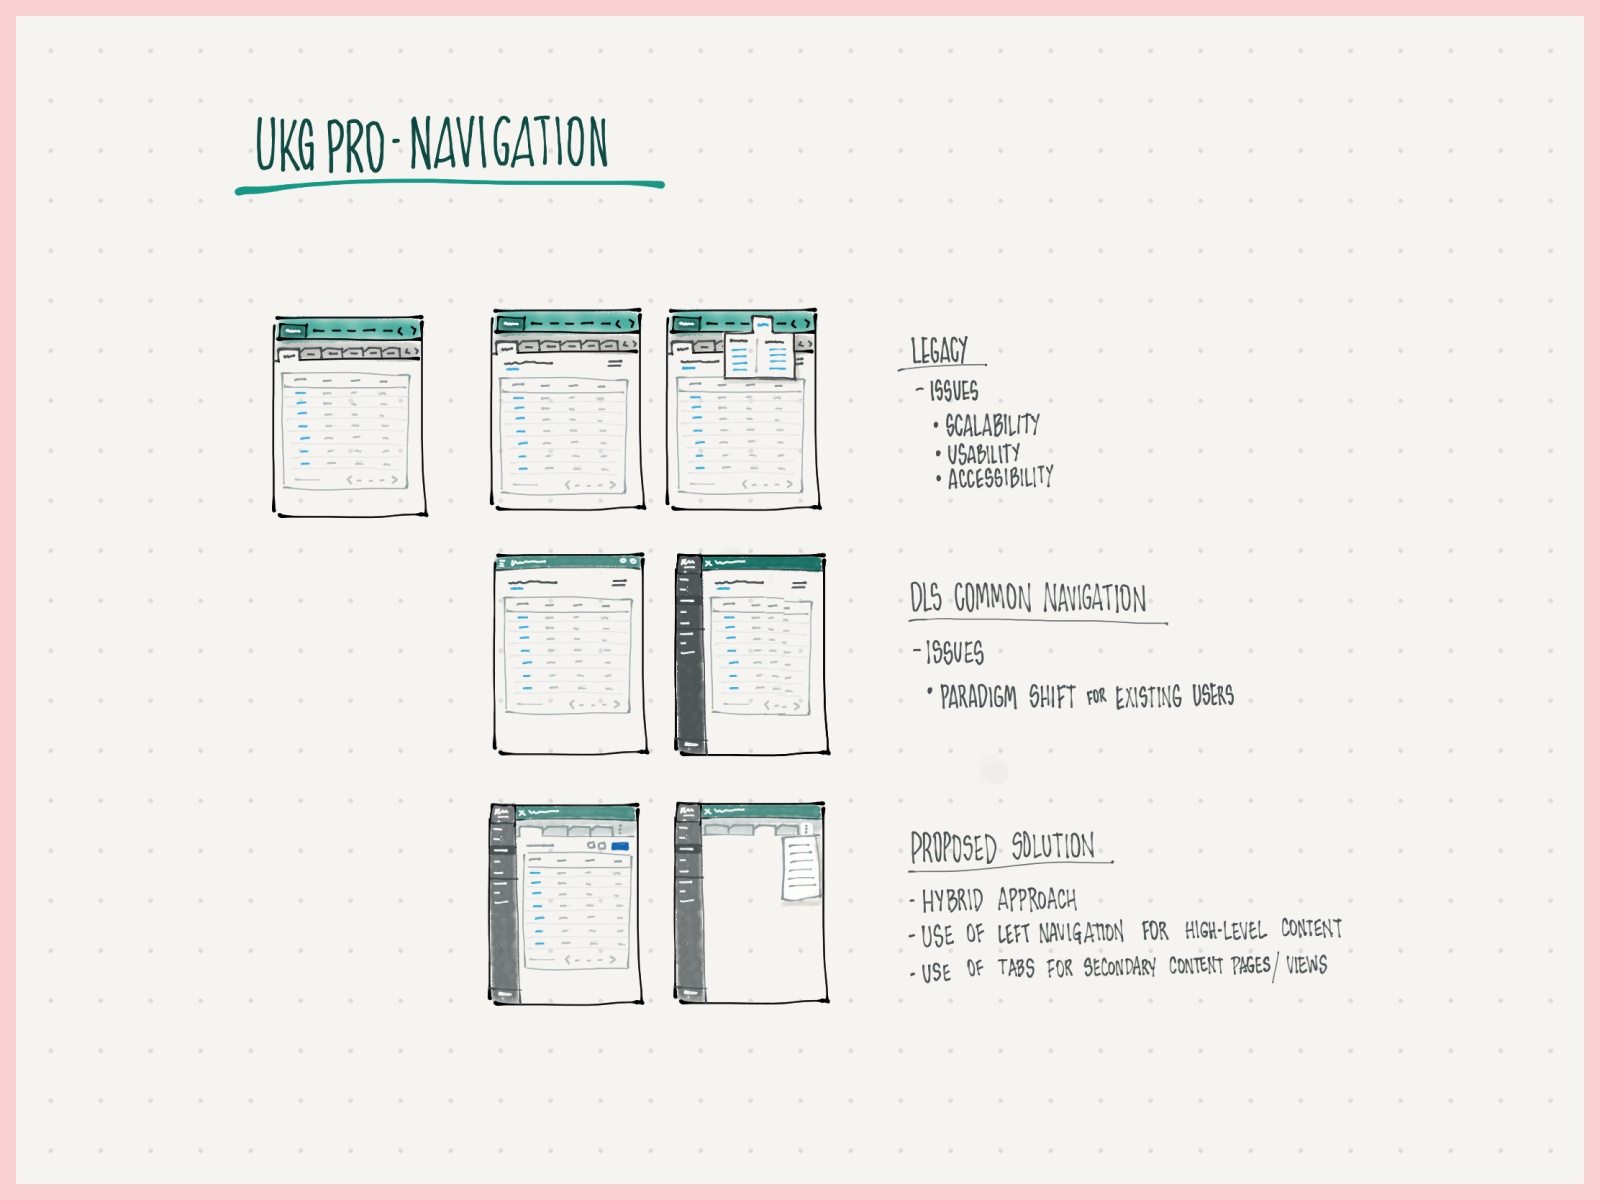 UKG PRO - NAVIGATION
LEGACY
- ISSUES
• SCALABILITY
• USABILITY
• ACCESSIBILITY
DLS COMMON NAVIGATION
- ISSUES
• PARADIGM SHIFT FOR EXISTING USERS
PROPOSED SOLUTION
- HYBRID APPROACH
- USE OF LEFT NAVIGATION FOR HIGH-LEVEL CONTENT
- USE OF TABS FOR SECONDARY CONTENT PAGES/VIEWS